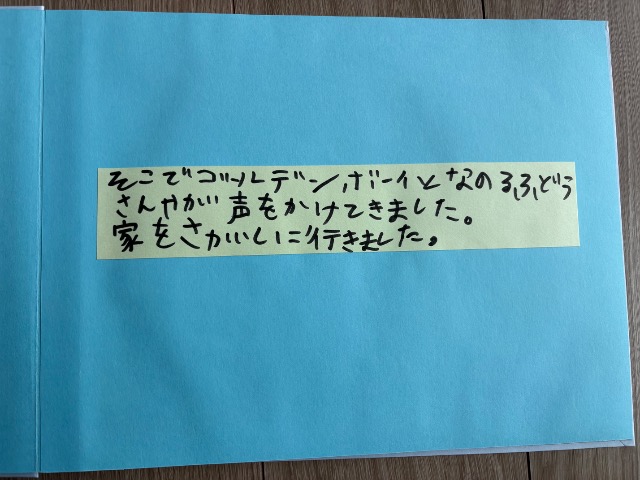 そこでゴールデンボーイとなのるふどう
さんやが声をかけてきました。
家をさがしに行きました。